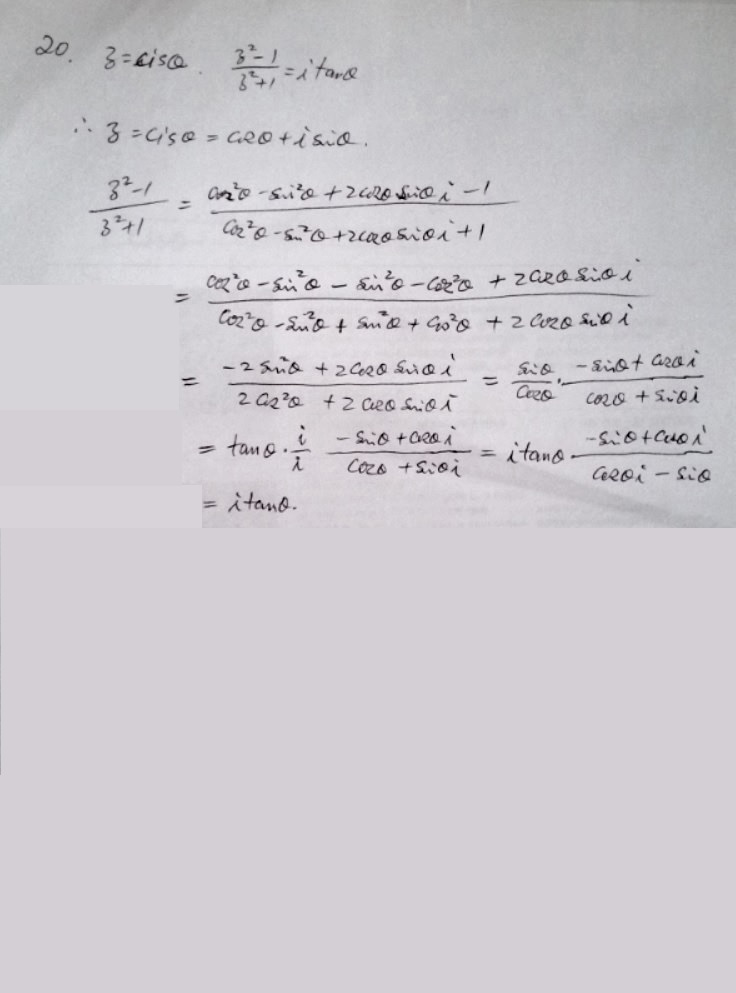 20. z = cisθ. (z²-1)/(z²+1) = i tanθ
∴ z = cisθ = cosθ + i sinθ.
(z²-1)/(z²+1) = (cos²θ - sin²θ + 2cosθ sinθ i - 1)/(cos²θ - sin²θ + 2cosθ sinθ i + 1)
= (cos²θ - sin²θ - sin²θ - cos²θ + 2cosθ sinθ i)/(cos²θ - sin²θ + sin²θ + cos²θ + 2cosθ sinθ i)
= (-2sin²θ + 2cosθ sinθ i)/(2cos²θ + 2cosθ sinθ i) = sinθ/cosθ · (-sinθ + cosθ i)/(cosθ + sinθ i)
= tanθ · i/i (-sinθ + cosθ i)/(cosθ + sinθ i) = i tanθ · (-sinθ + cosθ i)/(cosθ i - sinθ)
= i tanθ.